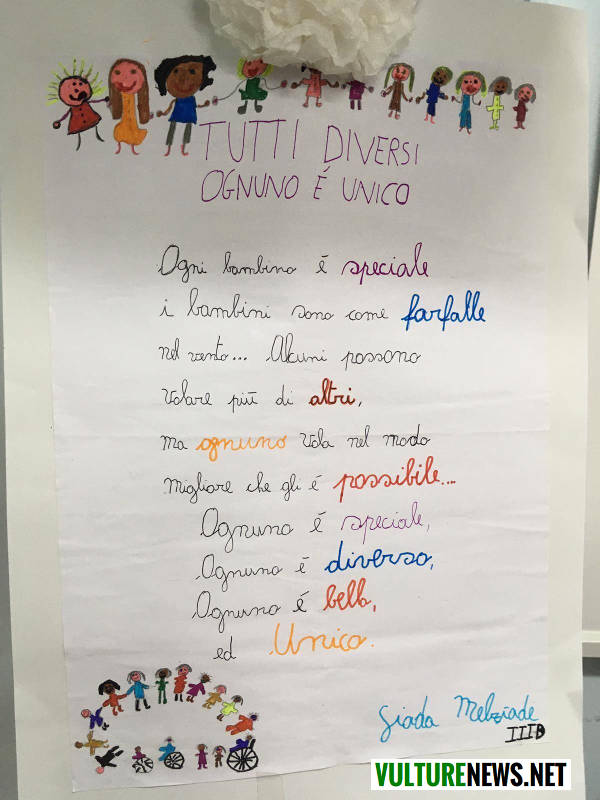 TUTTI DIVERSI
OGNUNO É UNICO
Ogni bambino é speciale
i bambini sono come farfalle
nel vento... Alcuni possono
volare piū di altri,
ma ognuno vola nel modo
migliore che gli é possibile...
Ognuno é speciale,
Ognuno é diverso,
Ognuno é bello,
ed Unico.
Giada Melziade
III B
VULTURENEWS.NET